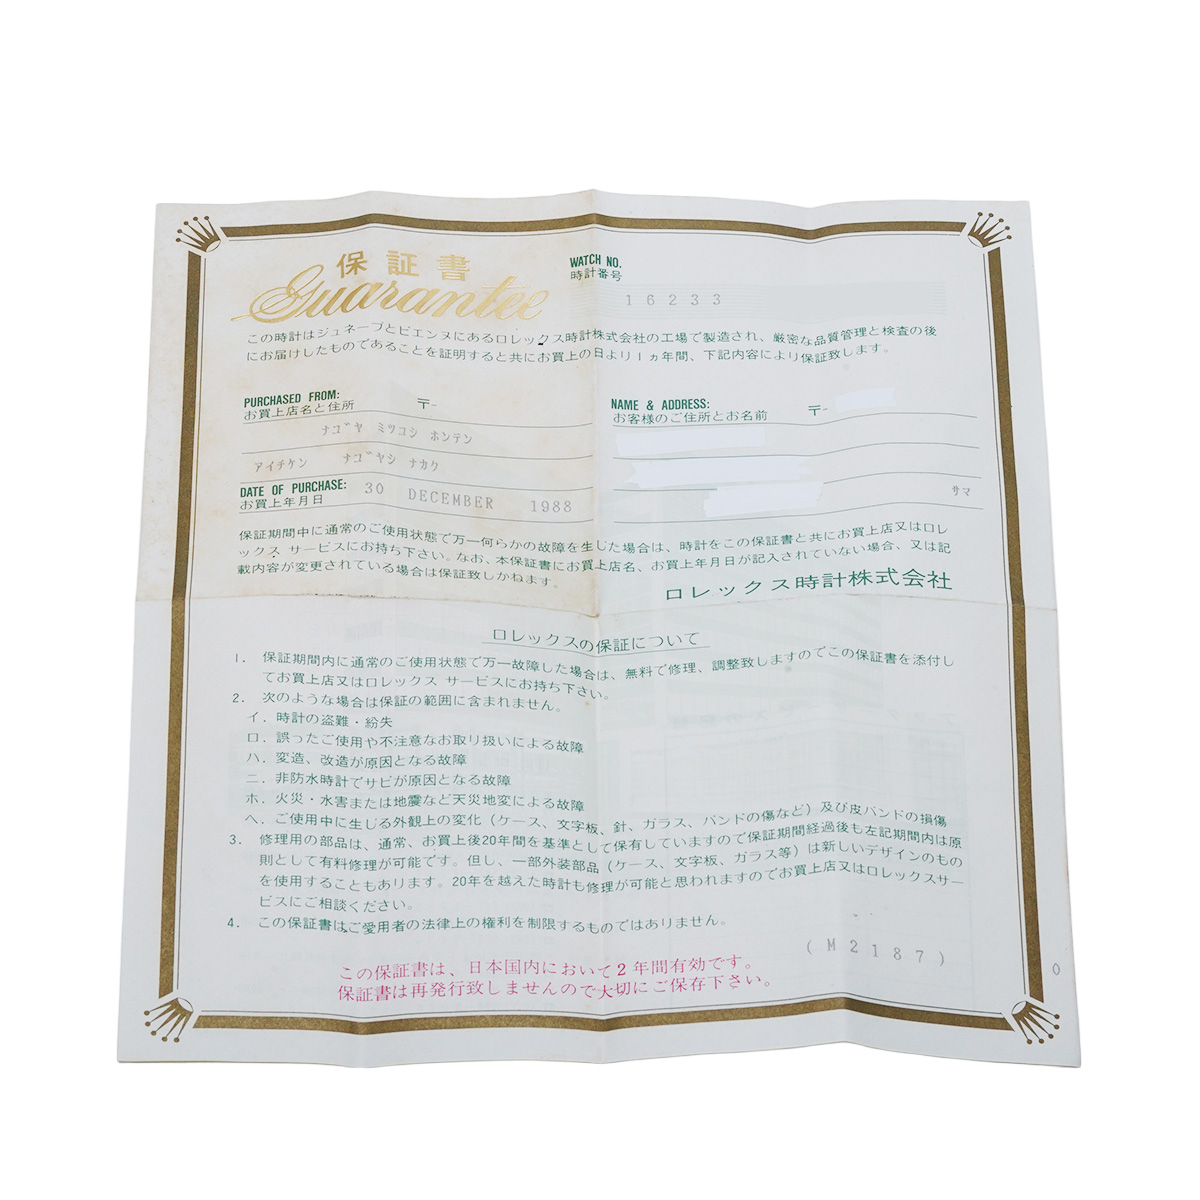 保証書
Guarantee
WATCH NO.
時計番号
16233
この時計はジュネーブとビエンヌにあるロレックス時計株式会社の工場で製造され、厳密な品質管理と検査の後
にお届けしたものであることを証明すると共にお買上の日より1ヵ年間、下記内容により保証致します。
PURCHASED FROM:
お買上店名と住所 〒-
ナゴヤ ミツコシ ホンテン
アイチケン ナゴヤシ ナカク
DATE OF PURCHASE: 30 DECEMBER 1988
お買上年月日
NAME & ADDRESS:
お客様のご住所とお名前 〒-
サマ
保証期間中に通常のご使用状態で万一何らかの故障を生じた場合は、時計をこの保証書と共にお買上店又はロレ
ックス サービスにお持ち下さい。なお、本保証書にお買上店名、お買上年月日が記入されていない場合、又は記
載内容が変更されている場合は保証致しかねます。
ロレックス時計株式会社
ロレックスの保証について
1. 保証期間内に通常のご使用状態で万一故障した場合は、無料で修理、調整致しますのでこの保証書を添付し
てお買上店又はロレックス サービスにお持ち下さい。
2. 次のような場合は保証の範囲に含まれません。
イ. 時計の盗難・紛失
ロ. 誤ったご使用や不注意なお取り扱いによる故障
ハ. 変造、改造が原因となる故障
ニ. 非防水時計でサビが原因となる故障
ホ. 火災・水害または地震など天災地変による故障
ヘ. ご使用中に生じる外観上の変化(ケース、文字板、針、ガラス、バンドの傷など)及び皮バンドの損傷
3. 修理用の部品は、通常、お買上後20年間を基準として保有していますので保証期間経過後も左記期間内は原
則として有料修理が可能です。但し、一部外装部品(ケース、文字板、ガラス等)は新しいデザインのもの
を使用することもあります。20年を越えた時計も修理が可能と思われますのでお買上店又はロレックスサー
ビスにご相談ください。
4. この保証書はご愛用者の法律上の権利を制限するものではありません。
(M2187)
0
この保証書は、日本国内において2年間有効です。
保証書は再発行致しませんので大切にご保存下さい。